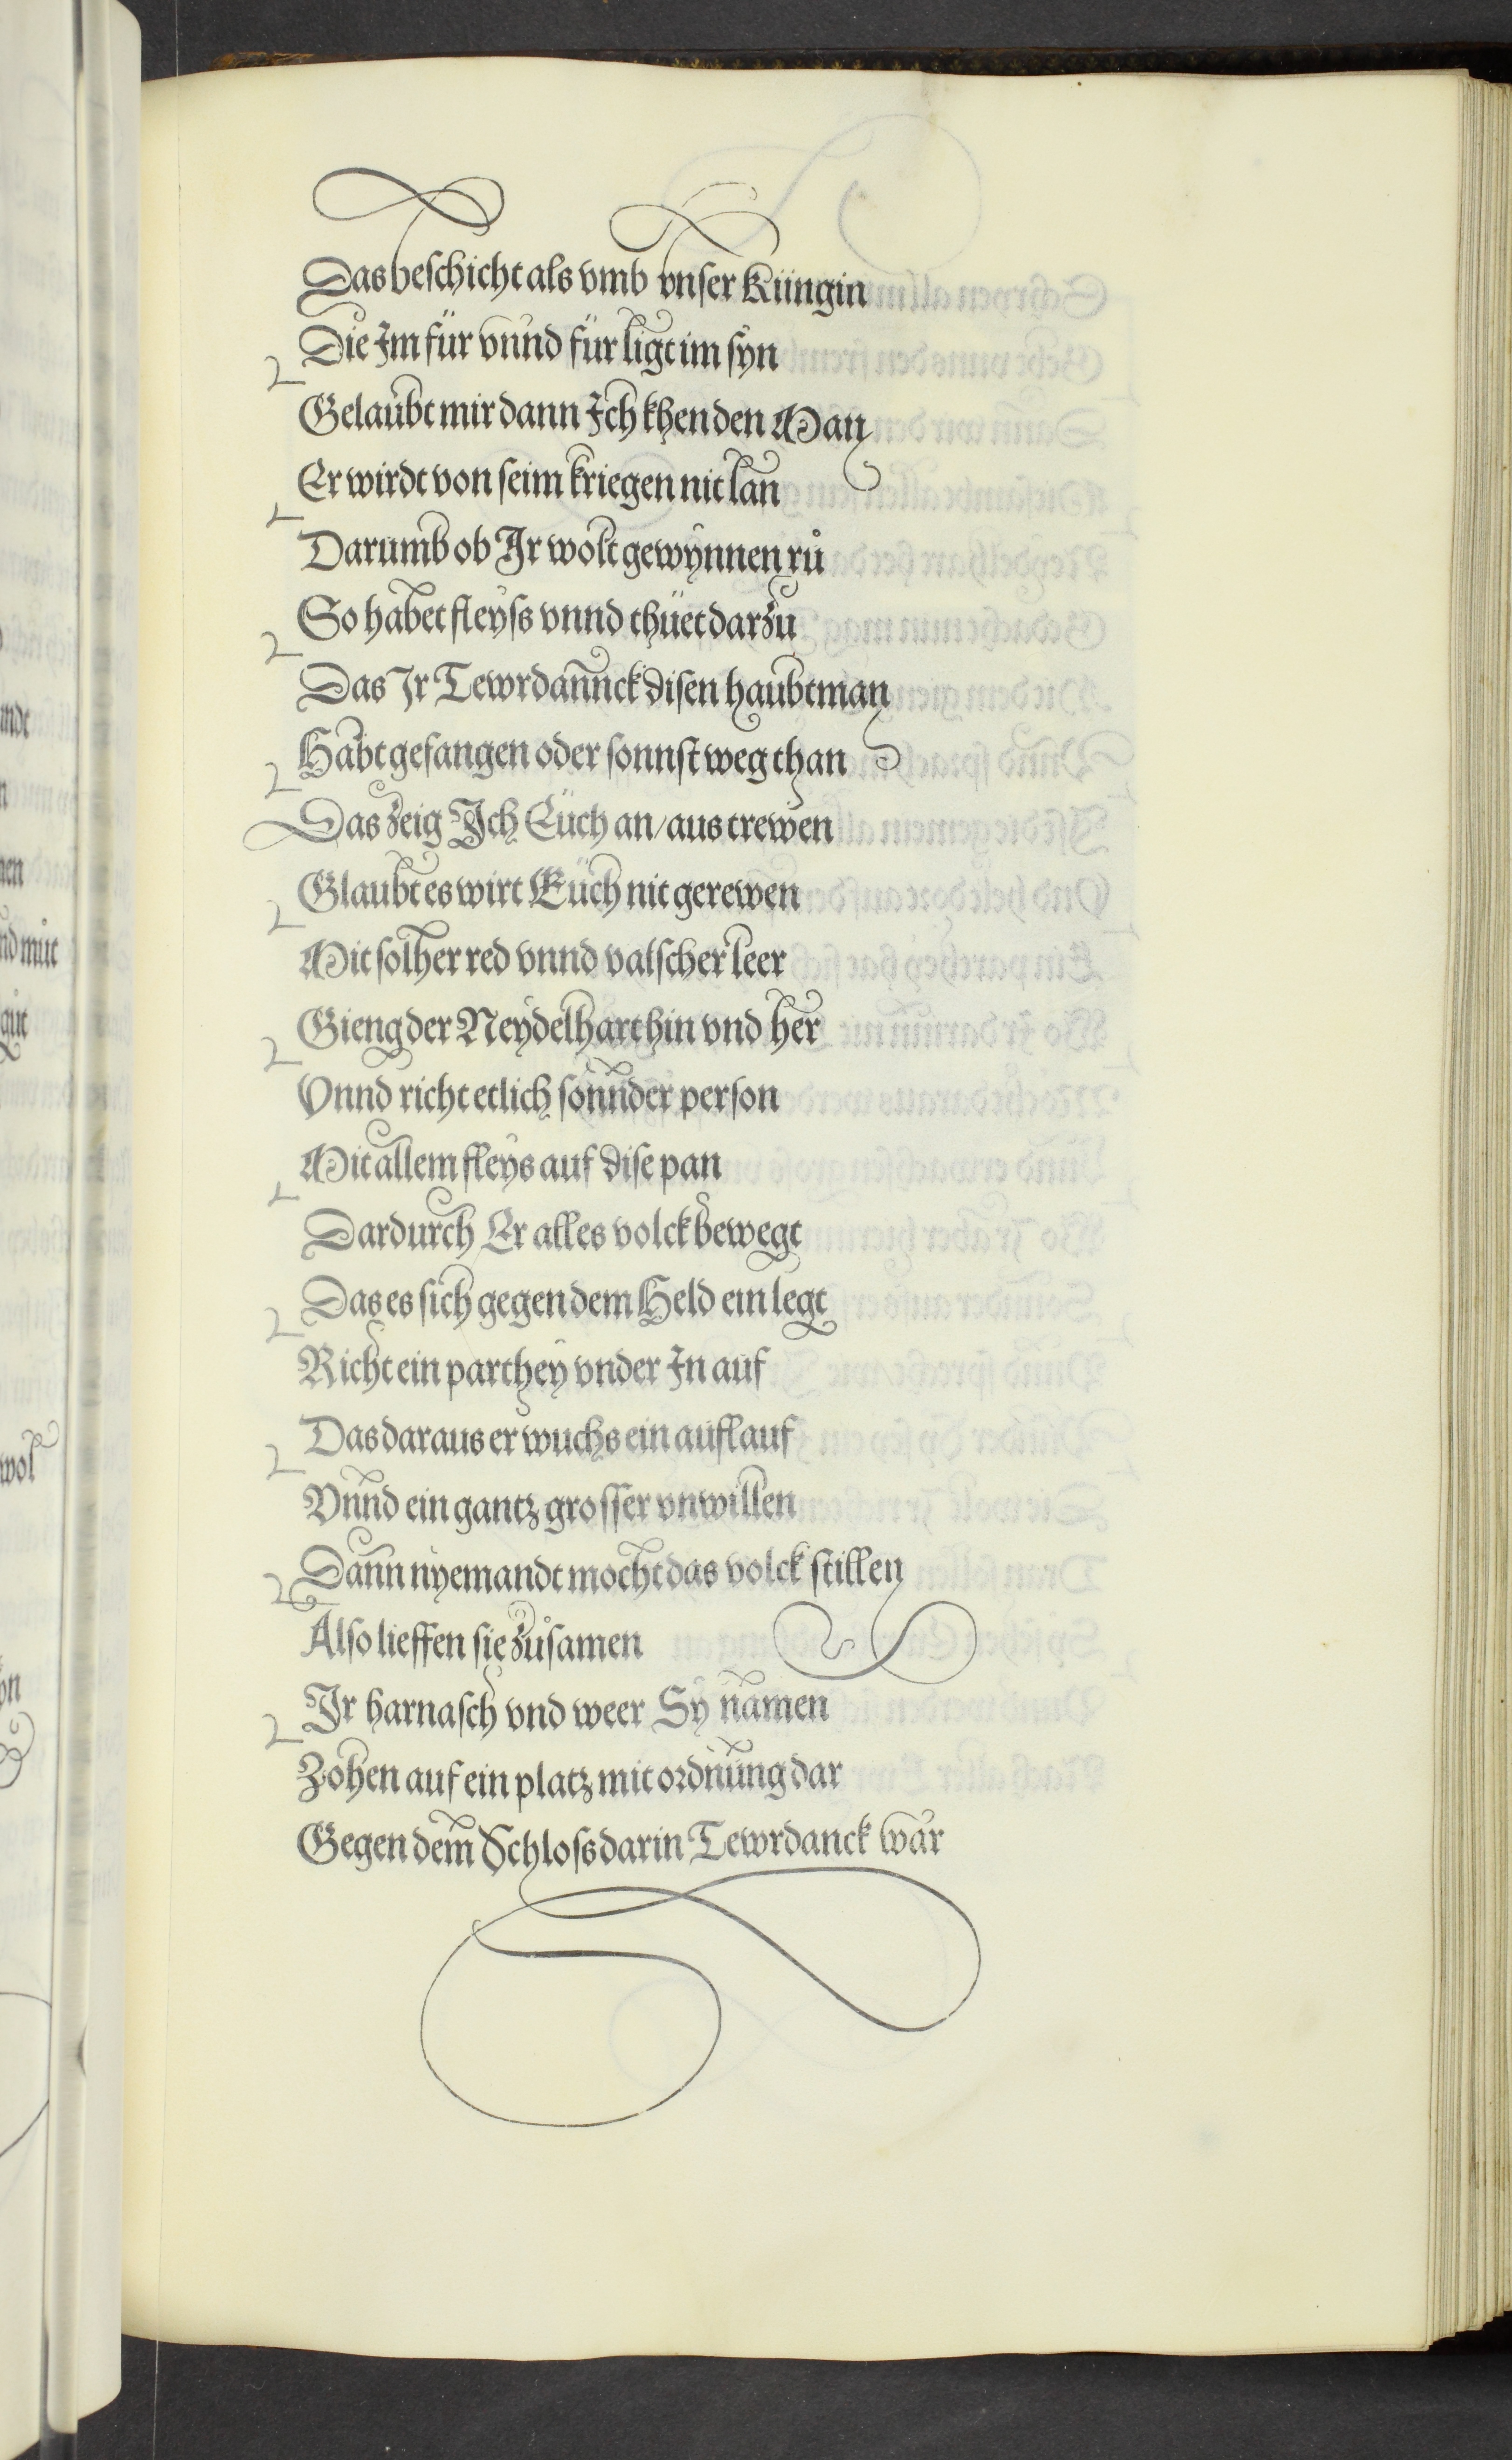 Das beschicht als vmb vnser Küngin
Die Im für vnnd für ligt im syn
Gelaubt mir dann Ich khen den Man
Er wirdt von seim kriegen nit lan
Darumb ob Ir wolt gewynnen rů
So habet fleyss vnnd thüet darzu
Das Ir Tewrdannck disen haubtman
Habt gefangen oder sonnst weg than
Das zeig Ich Eüch an / aus trewen
Glaubt es wirt Eüch nit gerewen
Mit solher red vnnd valscher leer
Gieng der Neydelhart hin vnd her
Vnnd richt etlich sonnder person
Mit allem fleys auf dise pan
Dardurch Er alles volck bewegt
Das es sich gegen dem Held ein legt
Richt ein parthey vnder In auf
Das daraus er wuchs ein auflauf
Vnnd ein gantz grosser vnwillen
Dann nyemandt mocht das volck stillen
Also lieffen sie zůsamen
Ir harnasch vnd weer Sy namen
Zohen auf ein platz mit ordnung dar
Gegen dem Schloss darin Tewrdanck war